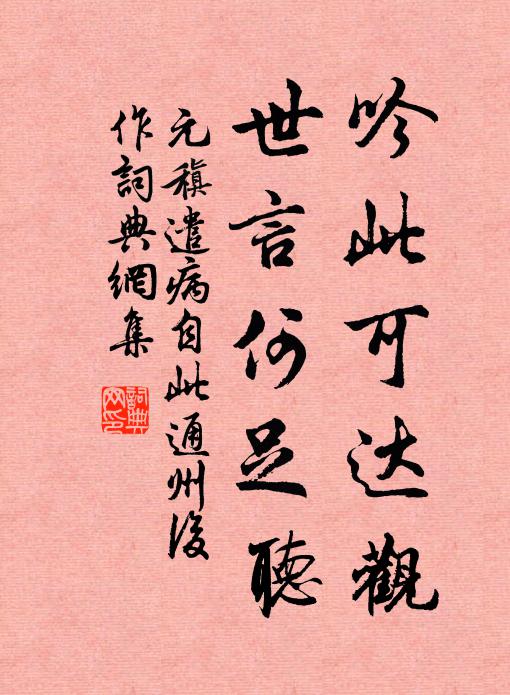 吟此可达觀
世言何足聽
元稹遣病自此通州後
作詞典網集
詞典网印